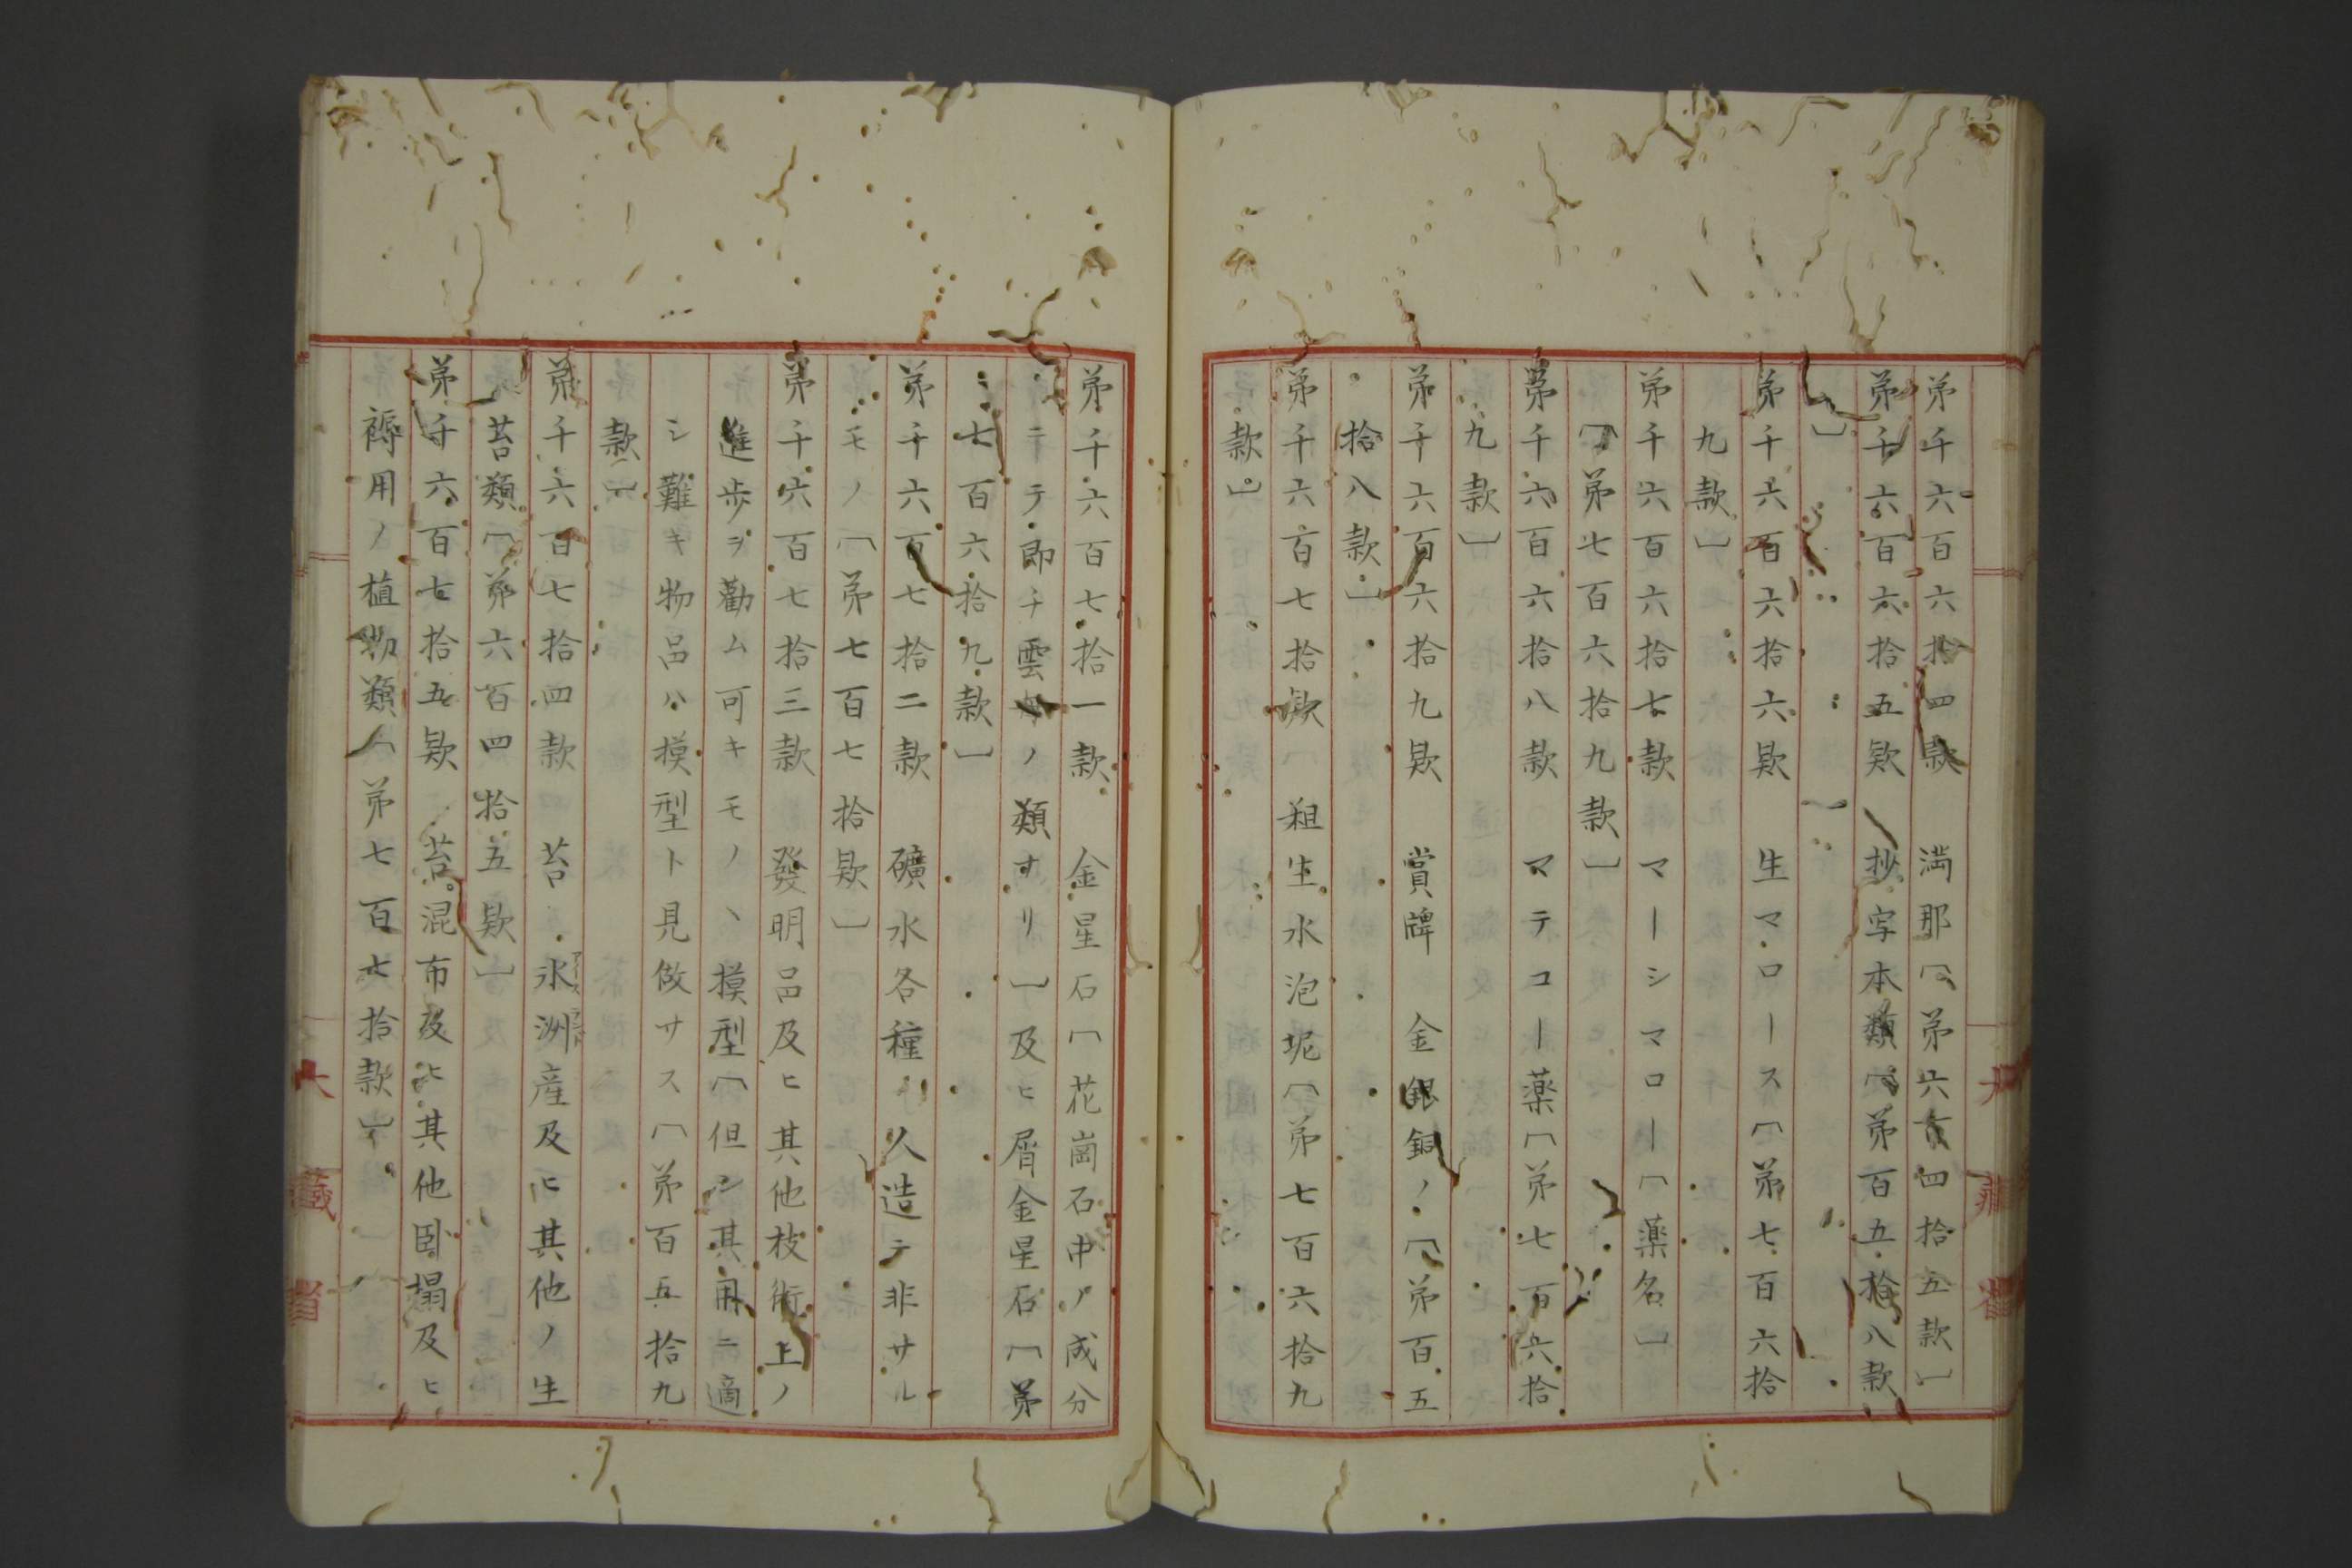 第千六百六拾四款　満那〔第六百四拾五款〕
第千六百六拾五款　抄写本類〔第百五拾八款
〕
第千六百六拾六款　生マローース〔第七百六拾
九款〕
第千六百六拾七款　マーシマロー〔薬名〕
〔第七百六拾九款〕
第千六百六拾八款　マテコー薬〔第七百六拾
九款〕
第千六百六拾九款　賞牌　金銀銅ノ〔第百五
拾八款〕
第千六百七拾款　粗生水泡坭〔第七百六拾九
款〕
第千六百七拾一款　金星石〔花崗石中ノ成分
ニテ即チ雲母ノ類ナリ〕及ヒ屑金星石〔第
七百六拾九款〕
第千六百七拾二款　礦水各種　人造テ非サル
モノ〔第七百七拾款〕
第千六百七拾三款　發明品及ヒ其他技術上ノ
進歩ヲ勸ム可キモノヽ摸型〔但シ其用ニ適
シ難キ物品ハ摸型ト見做サス〔第百五拾九
款〕
第千六百七拾四款　苔　氷洲産及ヒ其他ノ生
アイスランド
苔類〔第六百四拾五款〕
第千六百七拾五款　苔。混布及ヒ其他卧榻及ヒ
褥用ノ植物類〔第七百七拾款〕
大藏省
大藏省